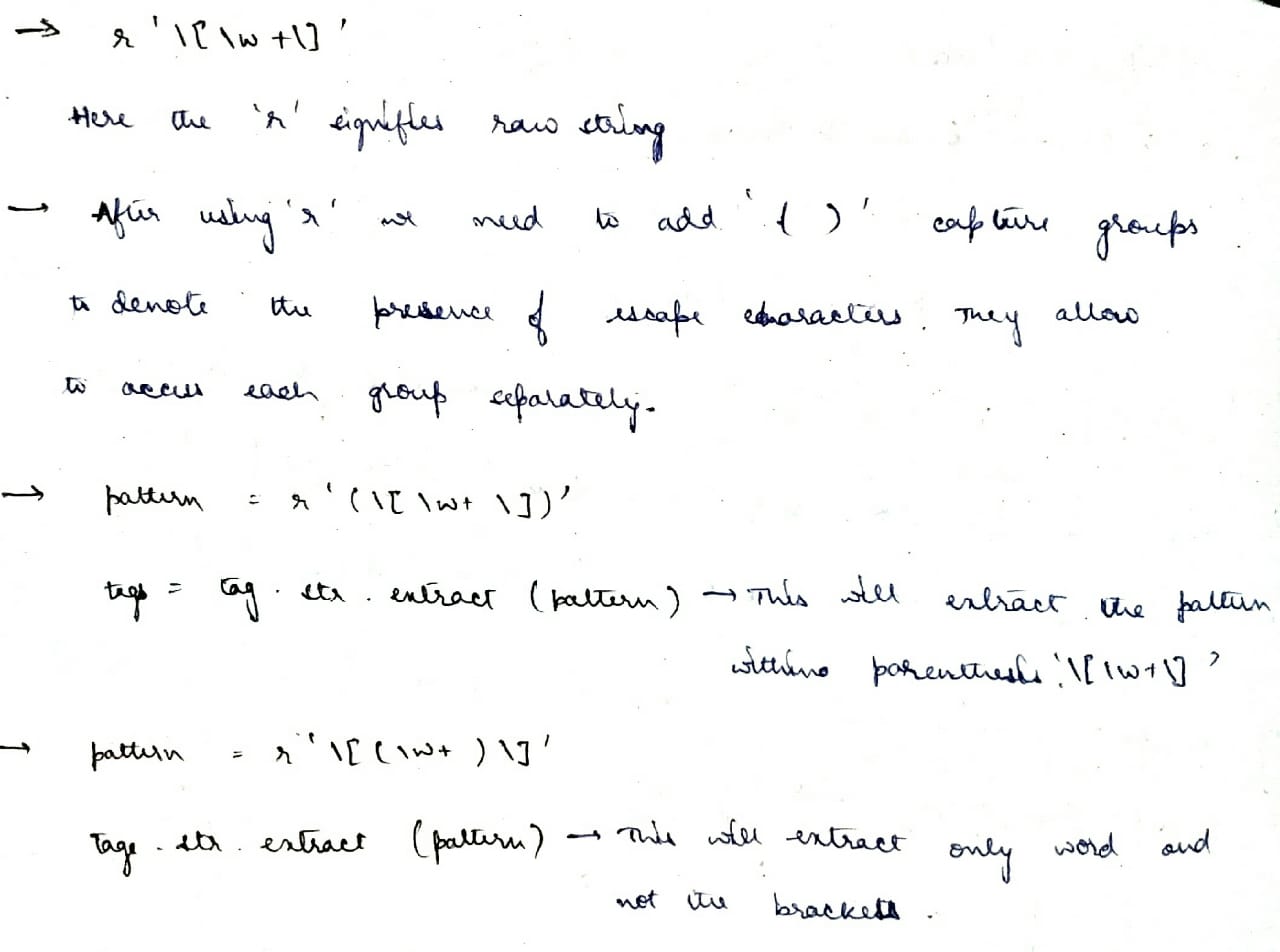 → r '\[\w+\]'
Here the 'r' signifies raw string
→ After using 'r' we need to add '( )' capture groups
to denote the presence of escape characters. They allow
to access each group separately.
→ pattern = r '(\[\w+\])'
tags = tag.str.extract (pattern) → This will extract the pattern
within parenthesis '\[\w+\]'
→ pattern = r '\[(\w+)\]'
Tags.str.extract (pattern) → This will extract only word and
not the brackets.